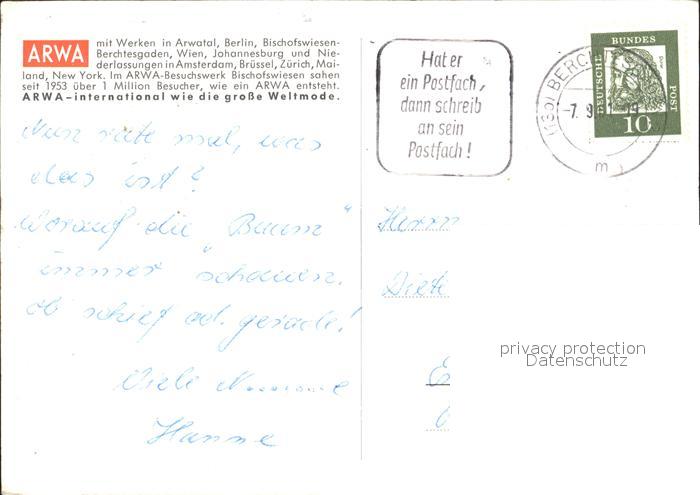 ARWA mit Werken in Arwatal, Berlin, Bischofswiesen-
Berchtesgaden, Wien, Johannesburg und Nie-
derlassungen in Amsterdam, Brüssel, Zürich, Mai-
land, New York. Im ARWA-Besuchswerk Bischofswiesen sahen
seit 1953 über 1 Million Besucher, wie ein ARWA entsteht.
ARWA–international wie die große Weltmode.
Nun rate mal, was
das ist?
Worauf die „Baum"
immer schauen.
Ob schief od. gerade!
Viele
Hanne
Hat er
ein Postfach,
dann schreib
an sein
Postfach!
BERCH
-7. 9.
m
DEUTSCHE
BUNDES
POST
10
Herrn
Diete
E
privacy protection
Datenschutz